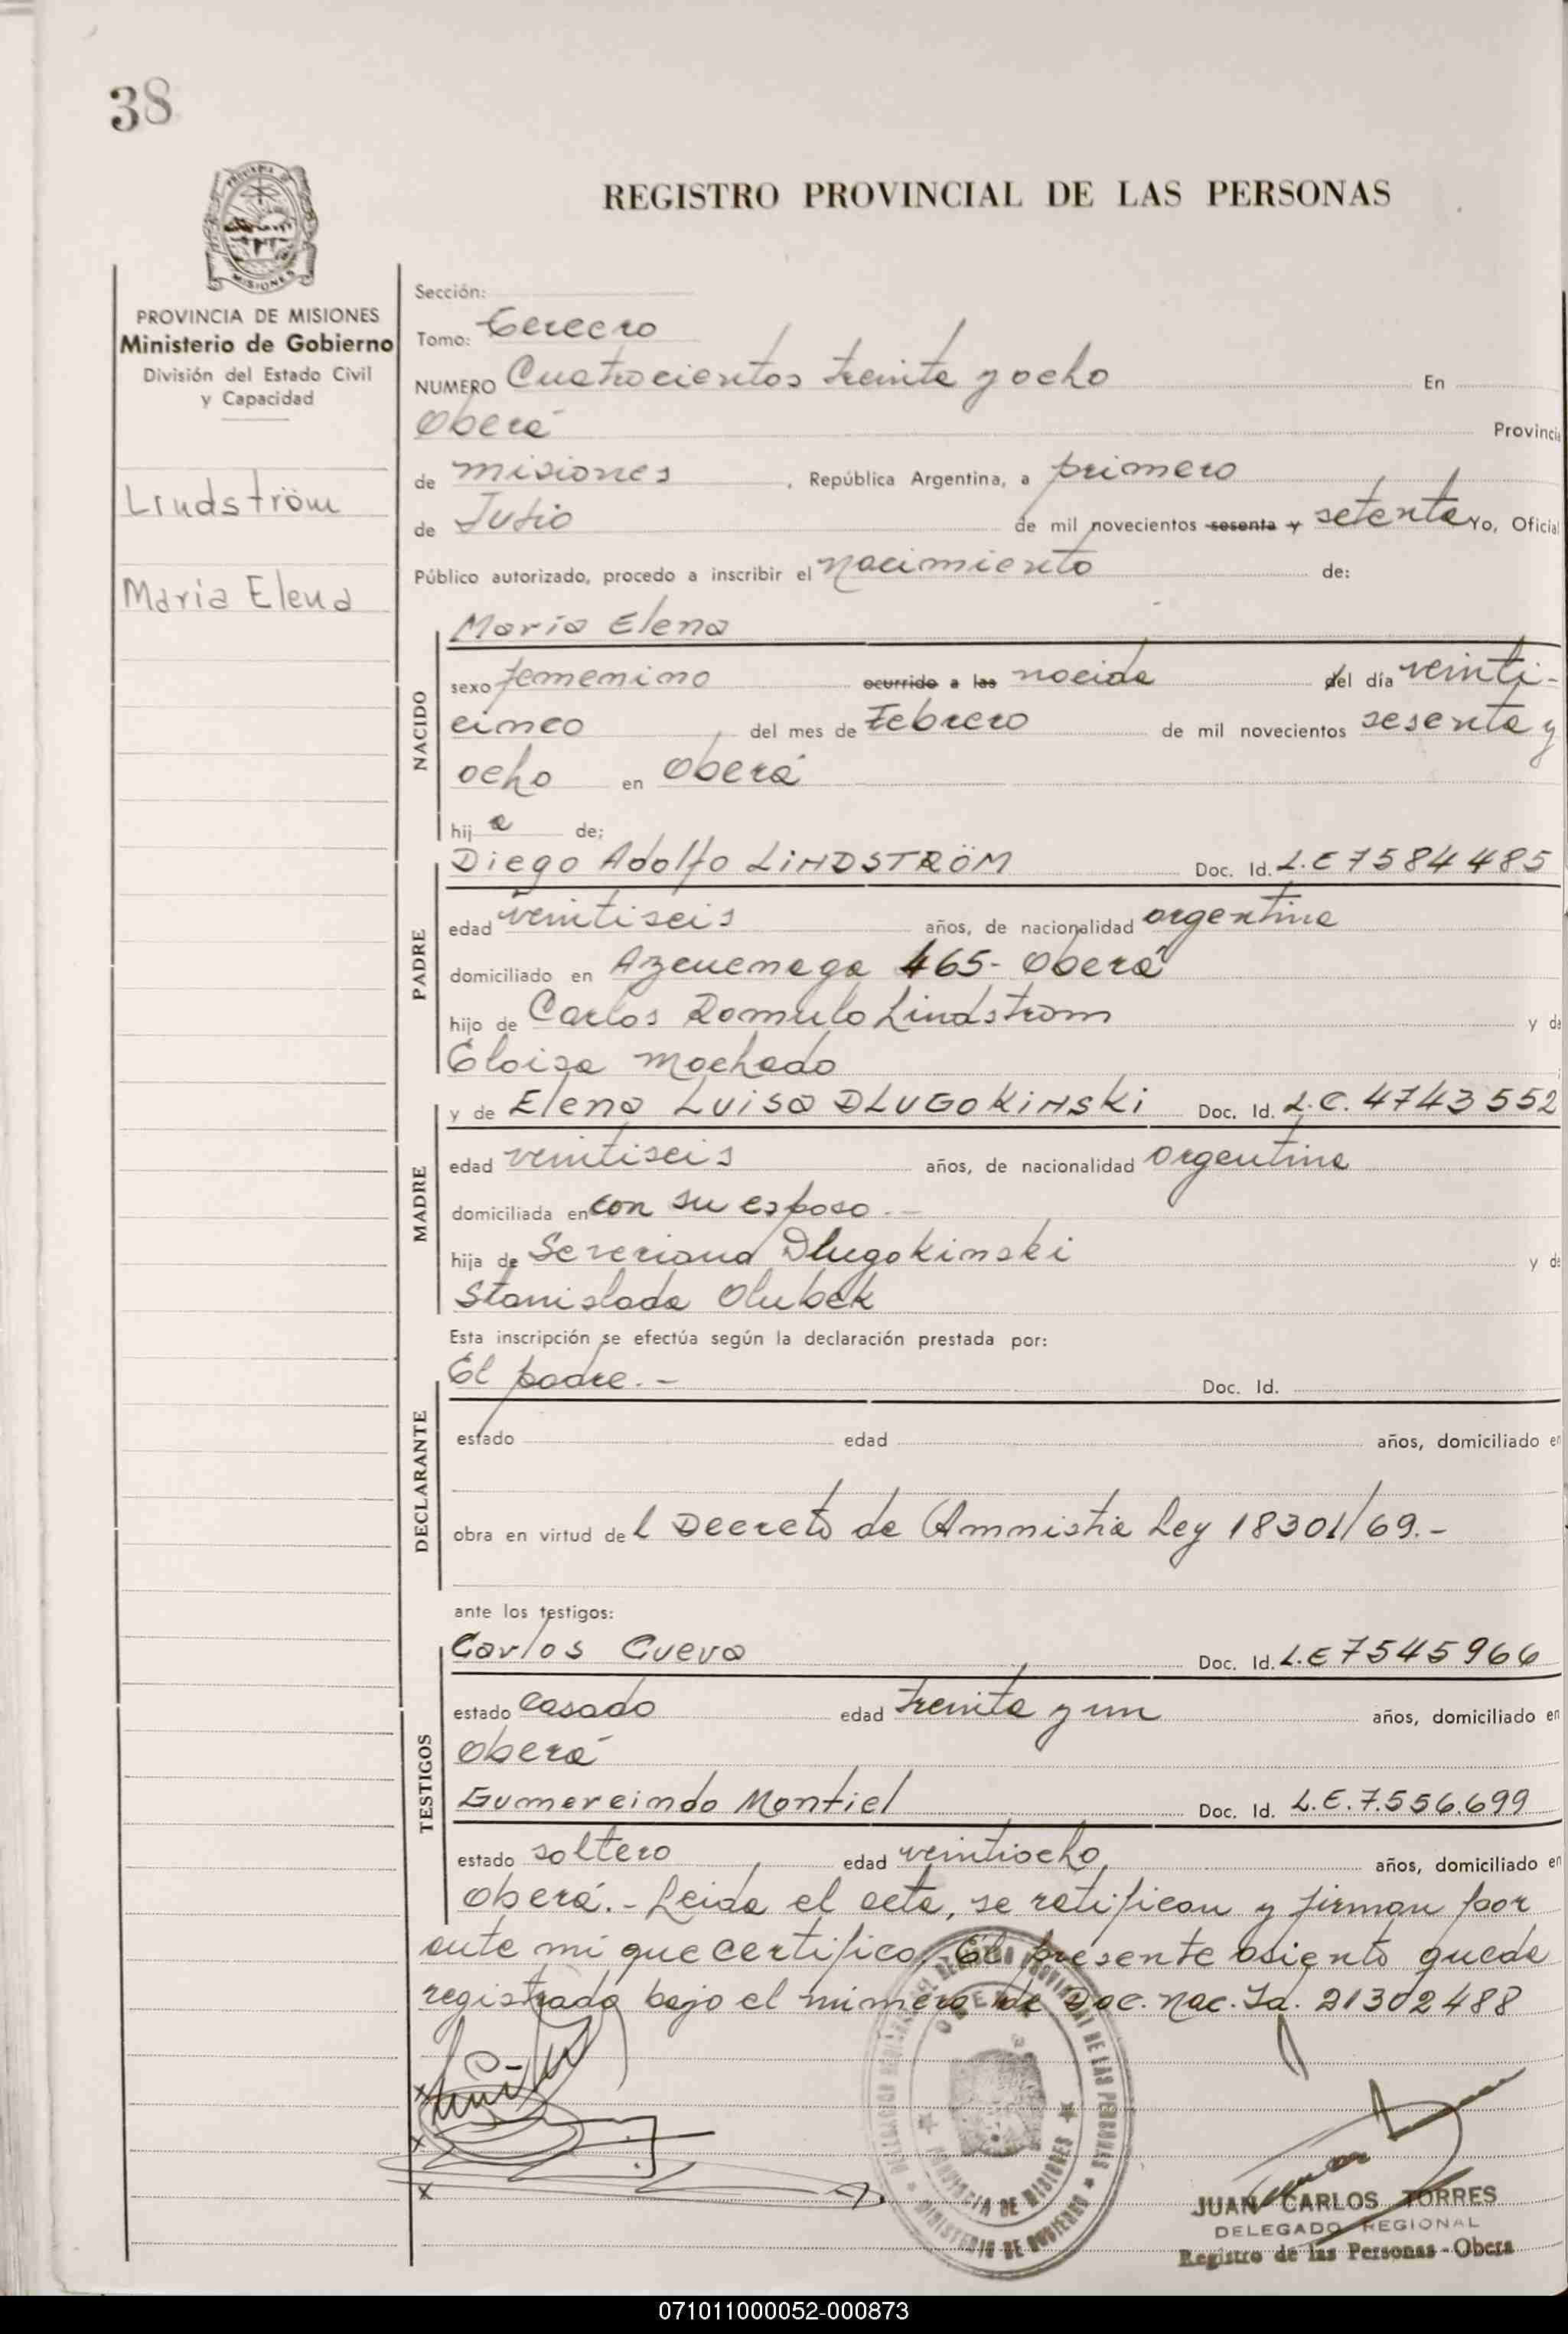 38
REGISTRO PROVINCIAL DE LAS PERSONAS
PROVINCIA DE MISIONES
Ministerio de Gobierno
División del Estado Civil
y Capacidad
Lindström
María Elena
Sección:
Tomo: Tercero
NUMERO Cuatrocientos treinta y ocho En
Oberá Provincia
de misiones, República Argentina, a primero
de Julio de mil novecientos sesenta y setenta yo, Oficial
Público autorizado, procedo a inscribir el nacimiento de:
NACIDO
María Elena
sexo femenino ocurrido a las nacida del día veinti-
cinco del mes de Febrero de mil novecientos sesenta y
ocho en Oberá
hija de:
PADRE
Diego Adolfo LINDSTRÖM Doc. Id. L.E 7584485
edad veintiseis años, de nacionalidad argentina
domiciliado en Azcuenaga 465- Oberá
hijo de Carlos Romulo Lindstrom y de
Eloisa Machado
MADRE
y de Elena Luisa DLUGOKINSKI Doc. Id. L.C. 4743552
edad veintiseis años, de nacionalidad argentina
domiciliada en con su esposo.-
hija de Severiano Dlugokinski y de
Stanislada Olubek
Esta inscripción se efectúa según la declaración prestada por:
DECLARANTE
El padre.- Doc. Id.
estado edad años, domiciliado en
obra en virtud del Decreto de Amnistia Ley 18301/69.-
ante los testigos:
TESTIGOS
Carlos Cueva Doc. Id. L.E 7545966
estado casado edad treinta y un años, domiciliado en
Oberá
Gumercindo Montiel Doc. Id. L.E. 7.556.699
estado soltero edad veintiocho, años, domiciliado en
Oberá.- Leida el acta, se ratifican y firman por
ante mi que certifico. El presente asiento queda
registrado bajo el número de Doc. Nac. Id. 21302488
x
x
x
PROVINCIA DE MISIONES
MINISTERIO DE GOBIERNO
JUAN CARLOS TORRES
DELEGADO REGIONAL
Registro de las Personas - Obera
071011000052-000873